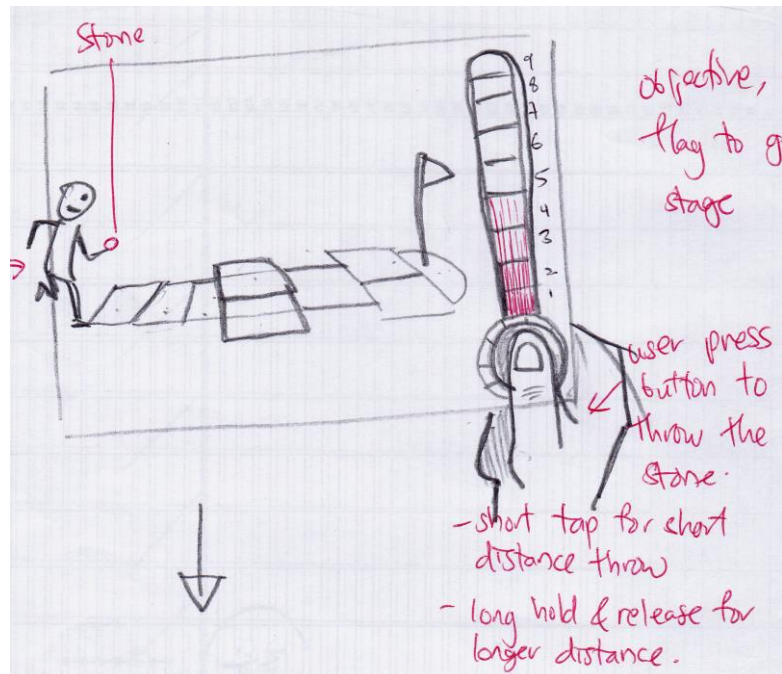 Stone
9
8
7
6
5
4
3
2
1
objective,
flag to g
stage
user press
button to
throw the
stone.
- short tap for short
distance throw
- long hold & release for
longer distance.